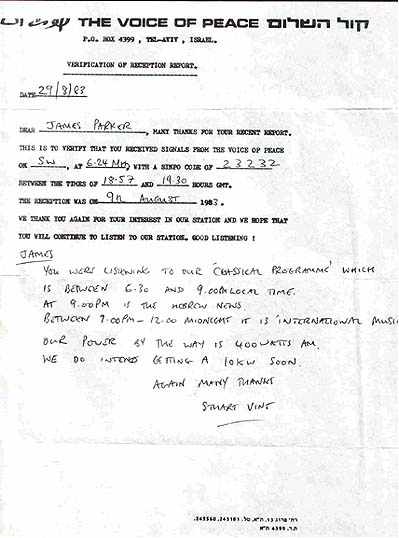 THE VOICE OF PEACE קול השלום
P.O. BOX 4399 , TEL-AVIV , ISRAEL.
VERIFICATION OF RECEPTION REPORT.
DATE 29/8/83
DEAR JAMES PARKER, MANY THANKS FOR YOUR RECENT REPORT.
THIS IS TO VERIFY THAT YOU RECEIVED SIGNALS FROM THE VOICE OF PEACE
ON SW, AT 6.24 MHz, WITH A SINPO CODE OF 23232
BETWEEN THE TIMES OF 18.57 AND 19.30 HOURS GMT.
THE RECEPTION WAS ON 9th AUGUST 1983.
WE THANK YOU AGAIN FOR YOUR INTEREST IN OUR STATION AND WE HOPE THAT
YOU WILL CONTINUE TO LISTEN TO OUR STATION. GOOD LISTENING !
JAMES
YOU WERE LISTENING TO OUR 'CLASSICAL PROGRAMME' WHICH
IS BETWEEN 6.30 AND 9.00PM LOCAL TIME.
AT 9.00PM IS THE HEBREW NEWS
BETWEEN 9.00PM - 12.00 MIDNIGHT IT IS 'INTERNATIONAL MUSI
OUR POWER BY THE WAY IS 400 WATTS AM.
WE DO INTEND GETTING A 10KW SOON.
AGAIN MANY THANKS
STUART VINE
ת.ד. 4399 ת"א